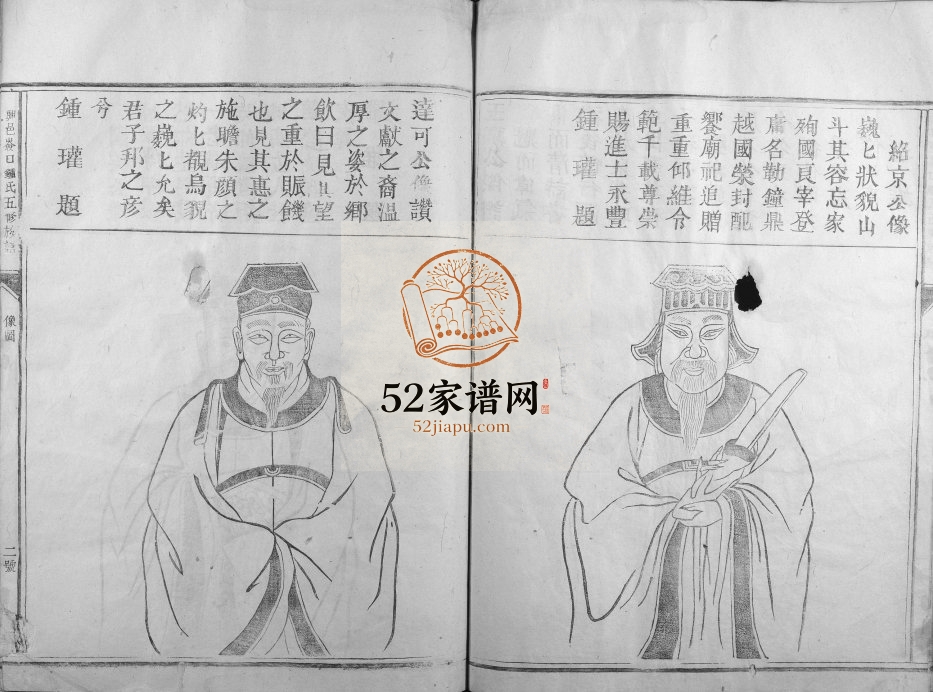 紹京公像
巍匕狀貌山
斗其容忘家
殉國良宰登
庸名勒鐘鼎
越國榮封配
饗廟祀追贈
重重仰維令
範千載尊崇
賜進士永豐
鍾瓘題
達可公像讚
文獻之裔溫
厚之姿於鄉
飲曰見其望
之重於賑饑
也見其惠之
施瞻朱顔之
灼匕覩烏貌
之巍匕允矣
君子邦之彦
兮
鍾瓘題
口鍾氏五修族譜
像圖
二號
52家谱网
52jiapu.com